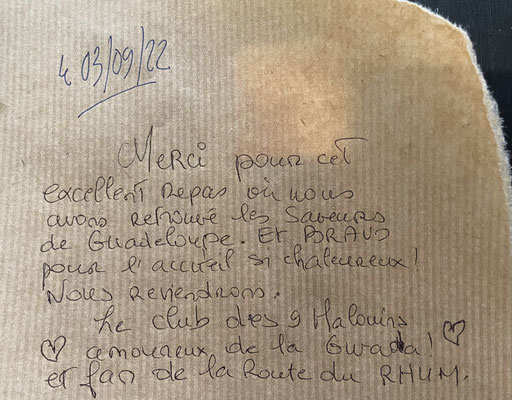 Le 03/09/22
Merci pour cet
excellent repas où nous
avons retrouvé les saveurs
de Guadeloupe. Et BRAVO
pour l'accueil si chaleureux!
Nous reviendrons.
Le club des 9 Malouins
♡ amoureux de la Gwada! ♡
et fan de la Route du RHUM.